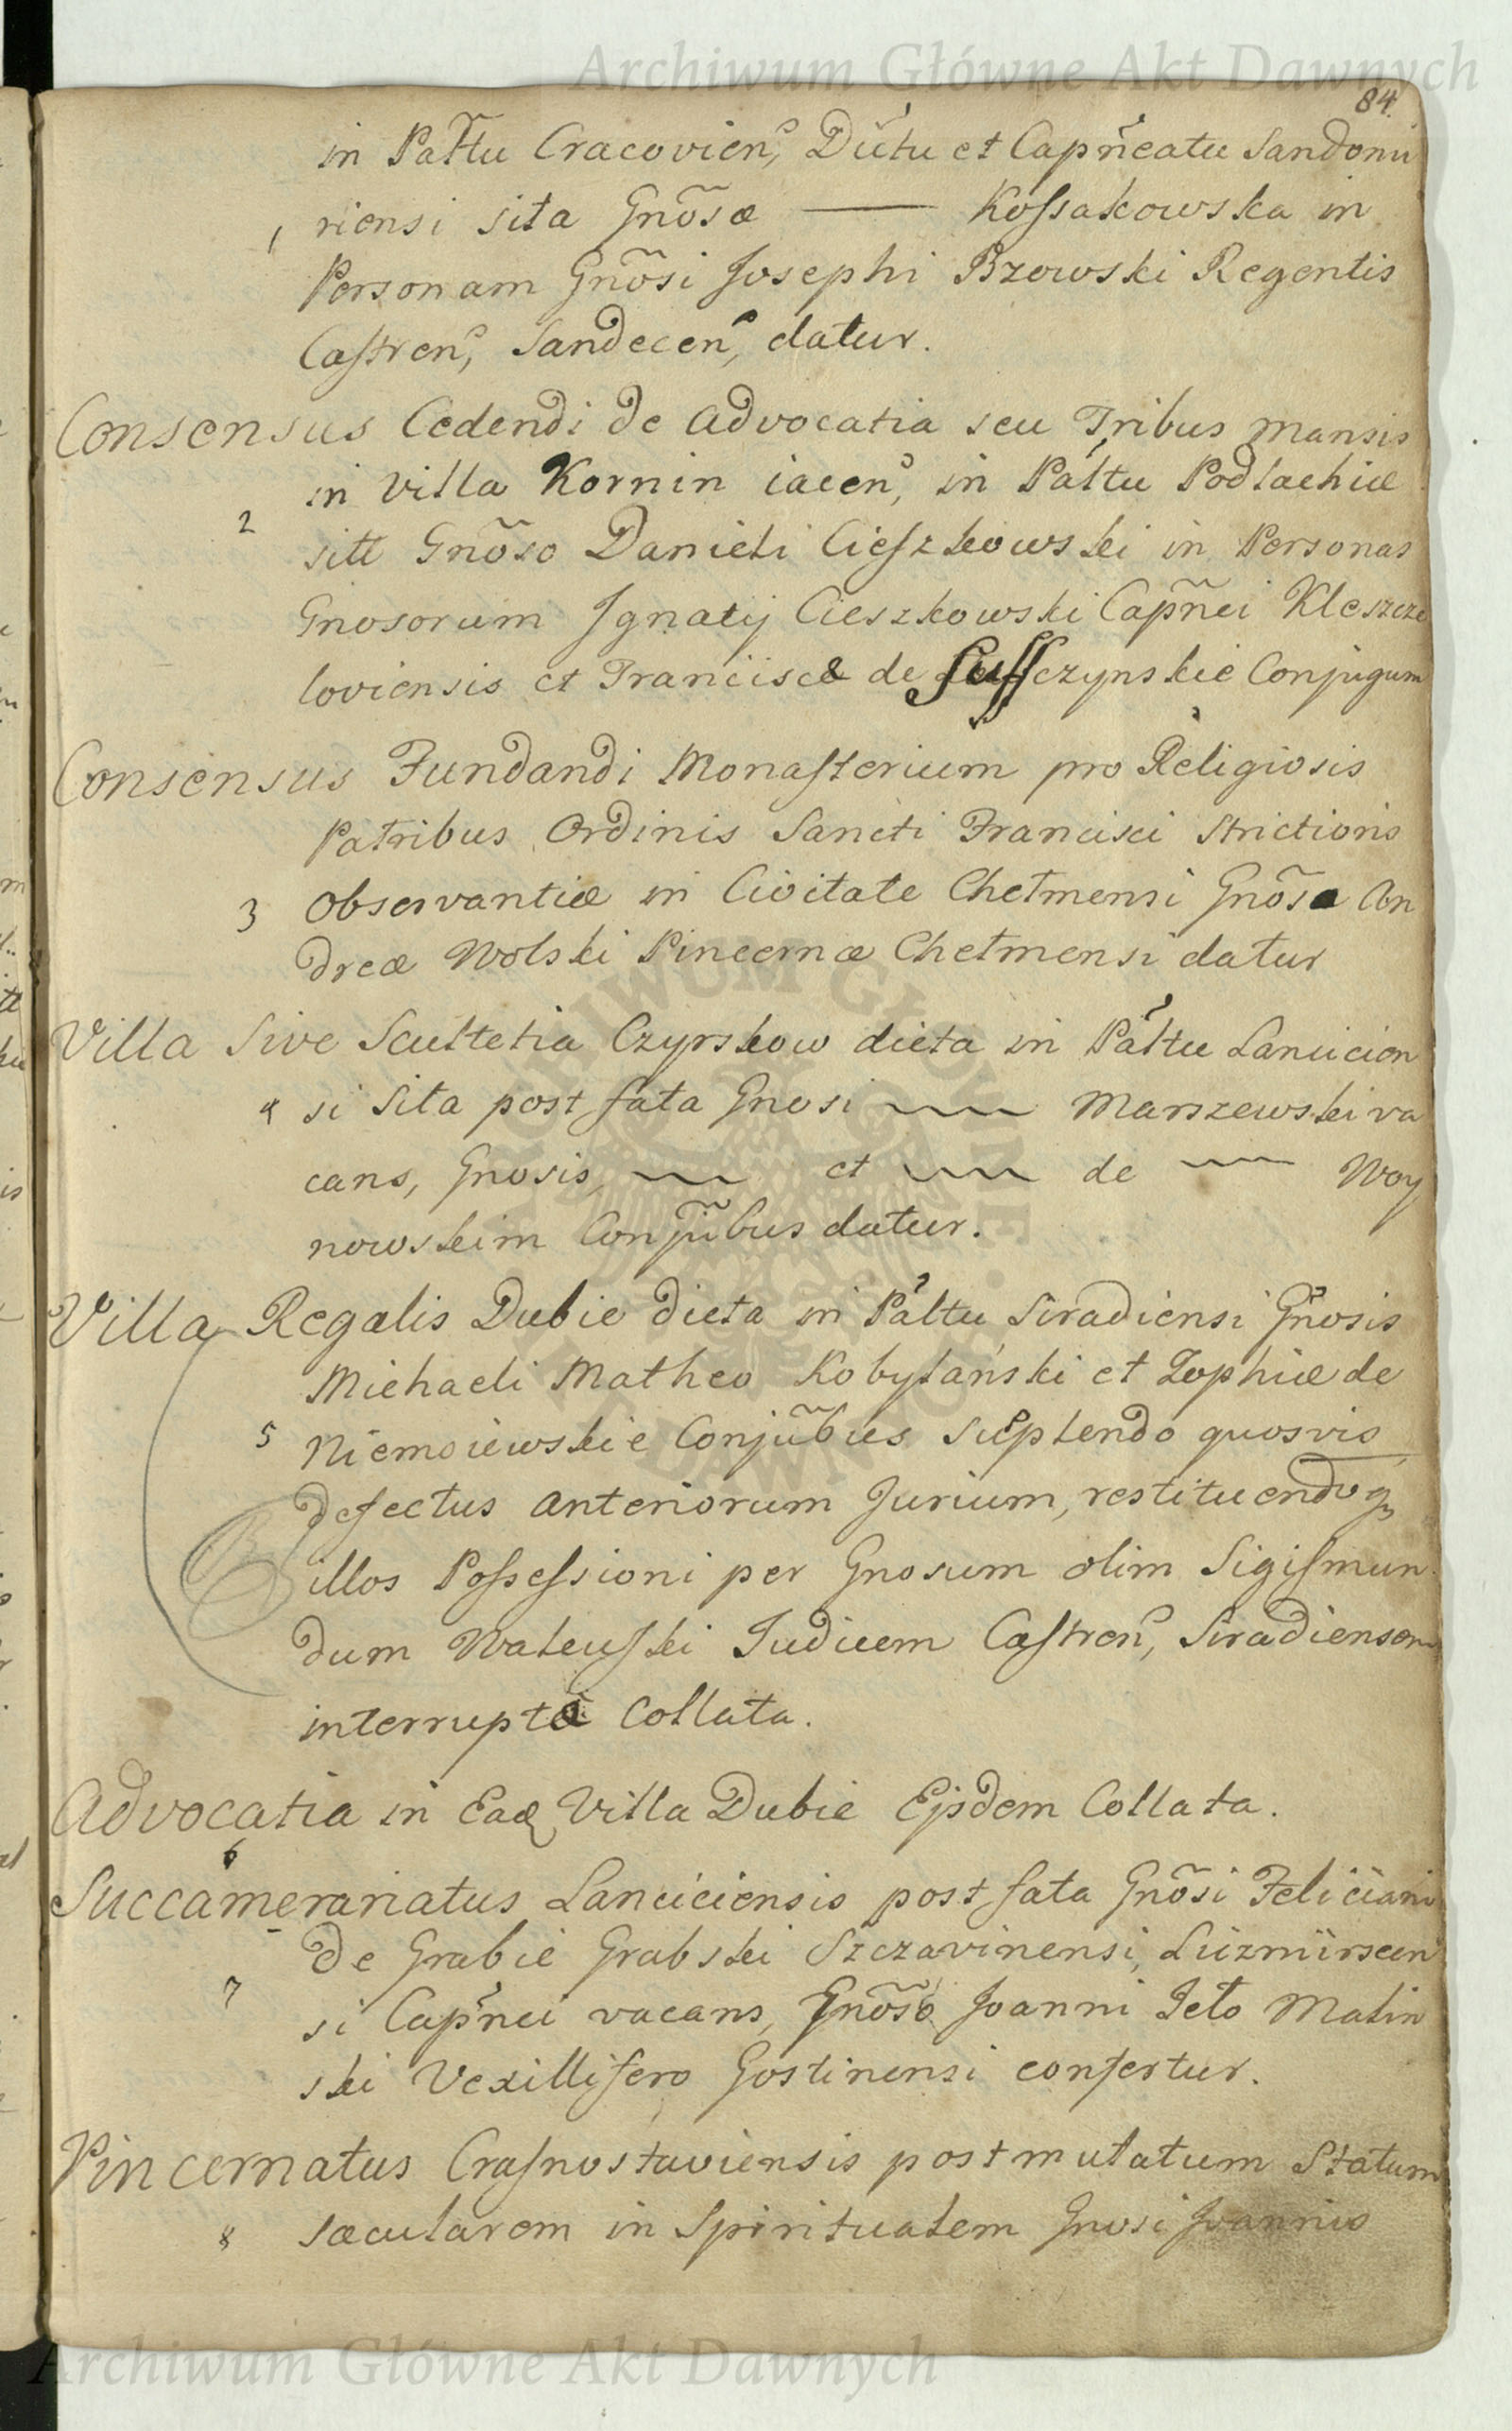 Archiwum Główne Akt Dawnych
84.
in Pałtu Cracovien, Dutu et Capñeatu Sandomi
1 riensi sita Gnõsæ —— Kossakowska in
Personam Gnõsi Josephi Bzowski Regentis
Castren, Sandecen, datur.
Consensus Cedendi de Advocatia seu Tribus mansis
in Villa Kornin iacen, in Pałtu Podlachiæ
2 sitt Gnõso Danieli Cieszkowski in Personas
Gnosorum Ignatij Cieszkowski Capñei Kleszcze
loviensis et Franciscæ de Suffczynskie Conjugum
Consensus Fundandi Monasterium pro Religiosis
Patribus Ordinis Sancti Francisci Strictioris
3 Observantiæ in Civitate Chełmensi Gnõso An
dreæ Wolski Pincernæ Chełmensi datur
Villa Sive Scultetia Czyrskow dicta in Pałtu Lancicien
4 si Sita post fata Gnosi ~~ Marszewski va
cans, Gnosis, ~~ et ~~ de ~~ Woy
nowskim Conjũbus datur.
Villa Regalis Dubie dicta in Pałtu Siradiensi Gnosis
Michaeli Matheo Kobyłański et Zophiæ de
5 Niemoiewskie Conjũbus Supplendo quosvis
defectus anteriorum Jurium, restituendoq
illos Possessioni per Gnosum olim Sigismun
dum Walewski Judicem Castren, Siradiensem
interrupta Collata.
Advocatia in Eadę Villa Dubie Ejsdem Collata.
6
Succamerariatus Lanciciensis post fata Gnõsi Feliciani
De Grabie Grabski Szczavinensi, Luzmirscen
7
si Capñei vacans, Gnõso Joanni Jeło Malin
ski Vexillifero Gostinensi confertur.
Pincernatus Crasnostaviensis post mutatum Statum
8 sæcularem in Spiritualem Gnosi Joannis
Archiwum Główne Akt Dawnych